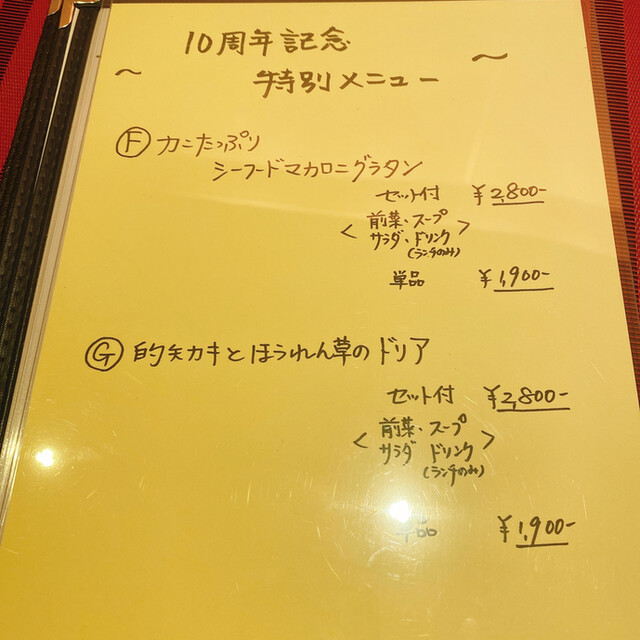 10周年記念
～ 特別メニュー ～
Ⓕ カニたっぷり
シーフードマカロニグラタン
セット付 ¥2,800-
<前菜、スープ
サラダ、ドリンク>
(ランチのみ)
単品 ¥1,900-
Ⓖ 的矢カキとほうれん草のドリア
セット付 ¥2,800-
<前菜、スープ
サラダ ドリンク>
(ランチのみ)
単品 ¥1,900-